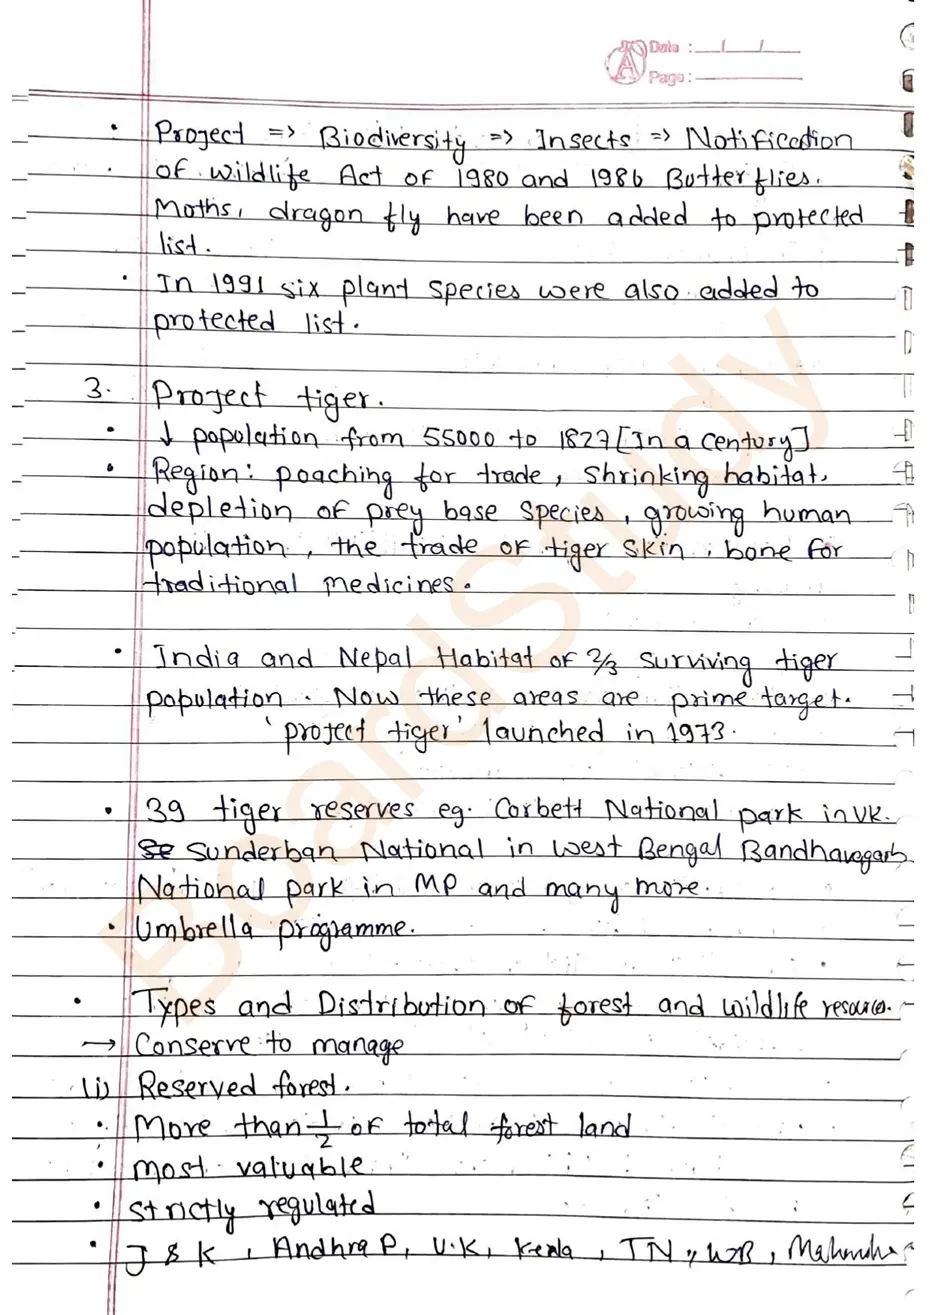 Date : __/__/__
Page :
• Project => Biodiversity => Insects => Notification
of wildlife Act of 1980 and 1986 Butterflies.
Moths, dragon fly have been added to protected
list.
• In 1991 six plant species were also added to
protected list.
3. Project tiger.
• ↓ population from 55000 to 1827 [In a century]
• Region: poaching for trade, shrinking habitat,
depletion of prey base species, growing human
population, the trade of tiger skin, bone for
traditional medicines.
• India and Nepal Habitat of 2/3 surviving tiger
population. Now these areas are prime target.
'project tiger' launched in 1973.
• 39 tiger reserves eg. Corbett National park in UK.
Sunderban National in West Bengal Bandhavegarh
National park in MP and many more.
• Umbrella programme.
• Types and Distribution of forest and wildlife resource.
→ Conserve to manage
(i) Reserved forest.
• More than 1/2 of total forest land
• most valuable
• strictly regulated
• J & K, Andhra P, U.K, Kerala, TN, WB, Mahar
BoardStudy